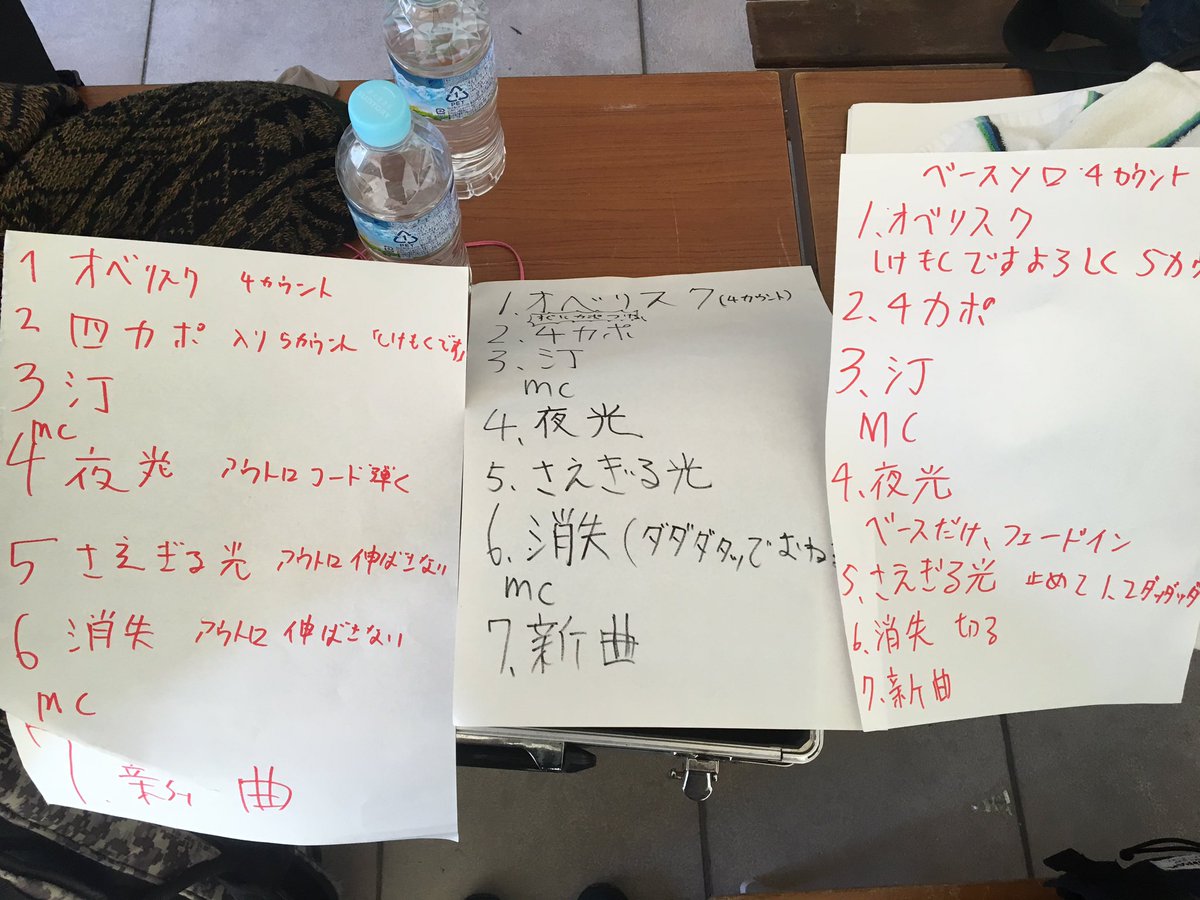 1 オベリスク 4カウント
2 四カポ 入り5カウント「しけもくです」
3 汀
MC
4 夜光 アウトロコード弾く
5 さえぎる光 アウトロ伸ばさない
6 消失 アウトロ伸ばさない
MC
7. 新曲
1. オベリスク(4カウント)
2. 4カポ
3. 汀
MC
4. 夜光
5. さえぎる光
6. 消失(ダダダダッでむね
MC
7. 新曲
ベースソロ 4カウント
1. オベリスク
しけもくですよろしく 5カウ
2. 4カポ
3. 汀
MC
4. 夜光
ベースだけ、フェードイン
5. さえぎる光 止めて
6. 消失 切る
7. 新曲